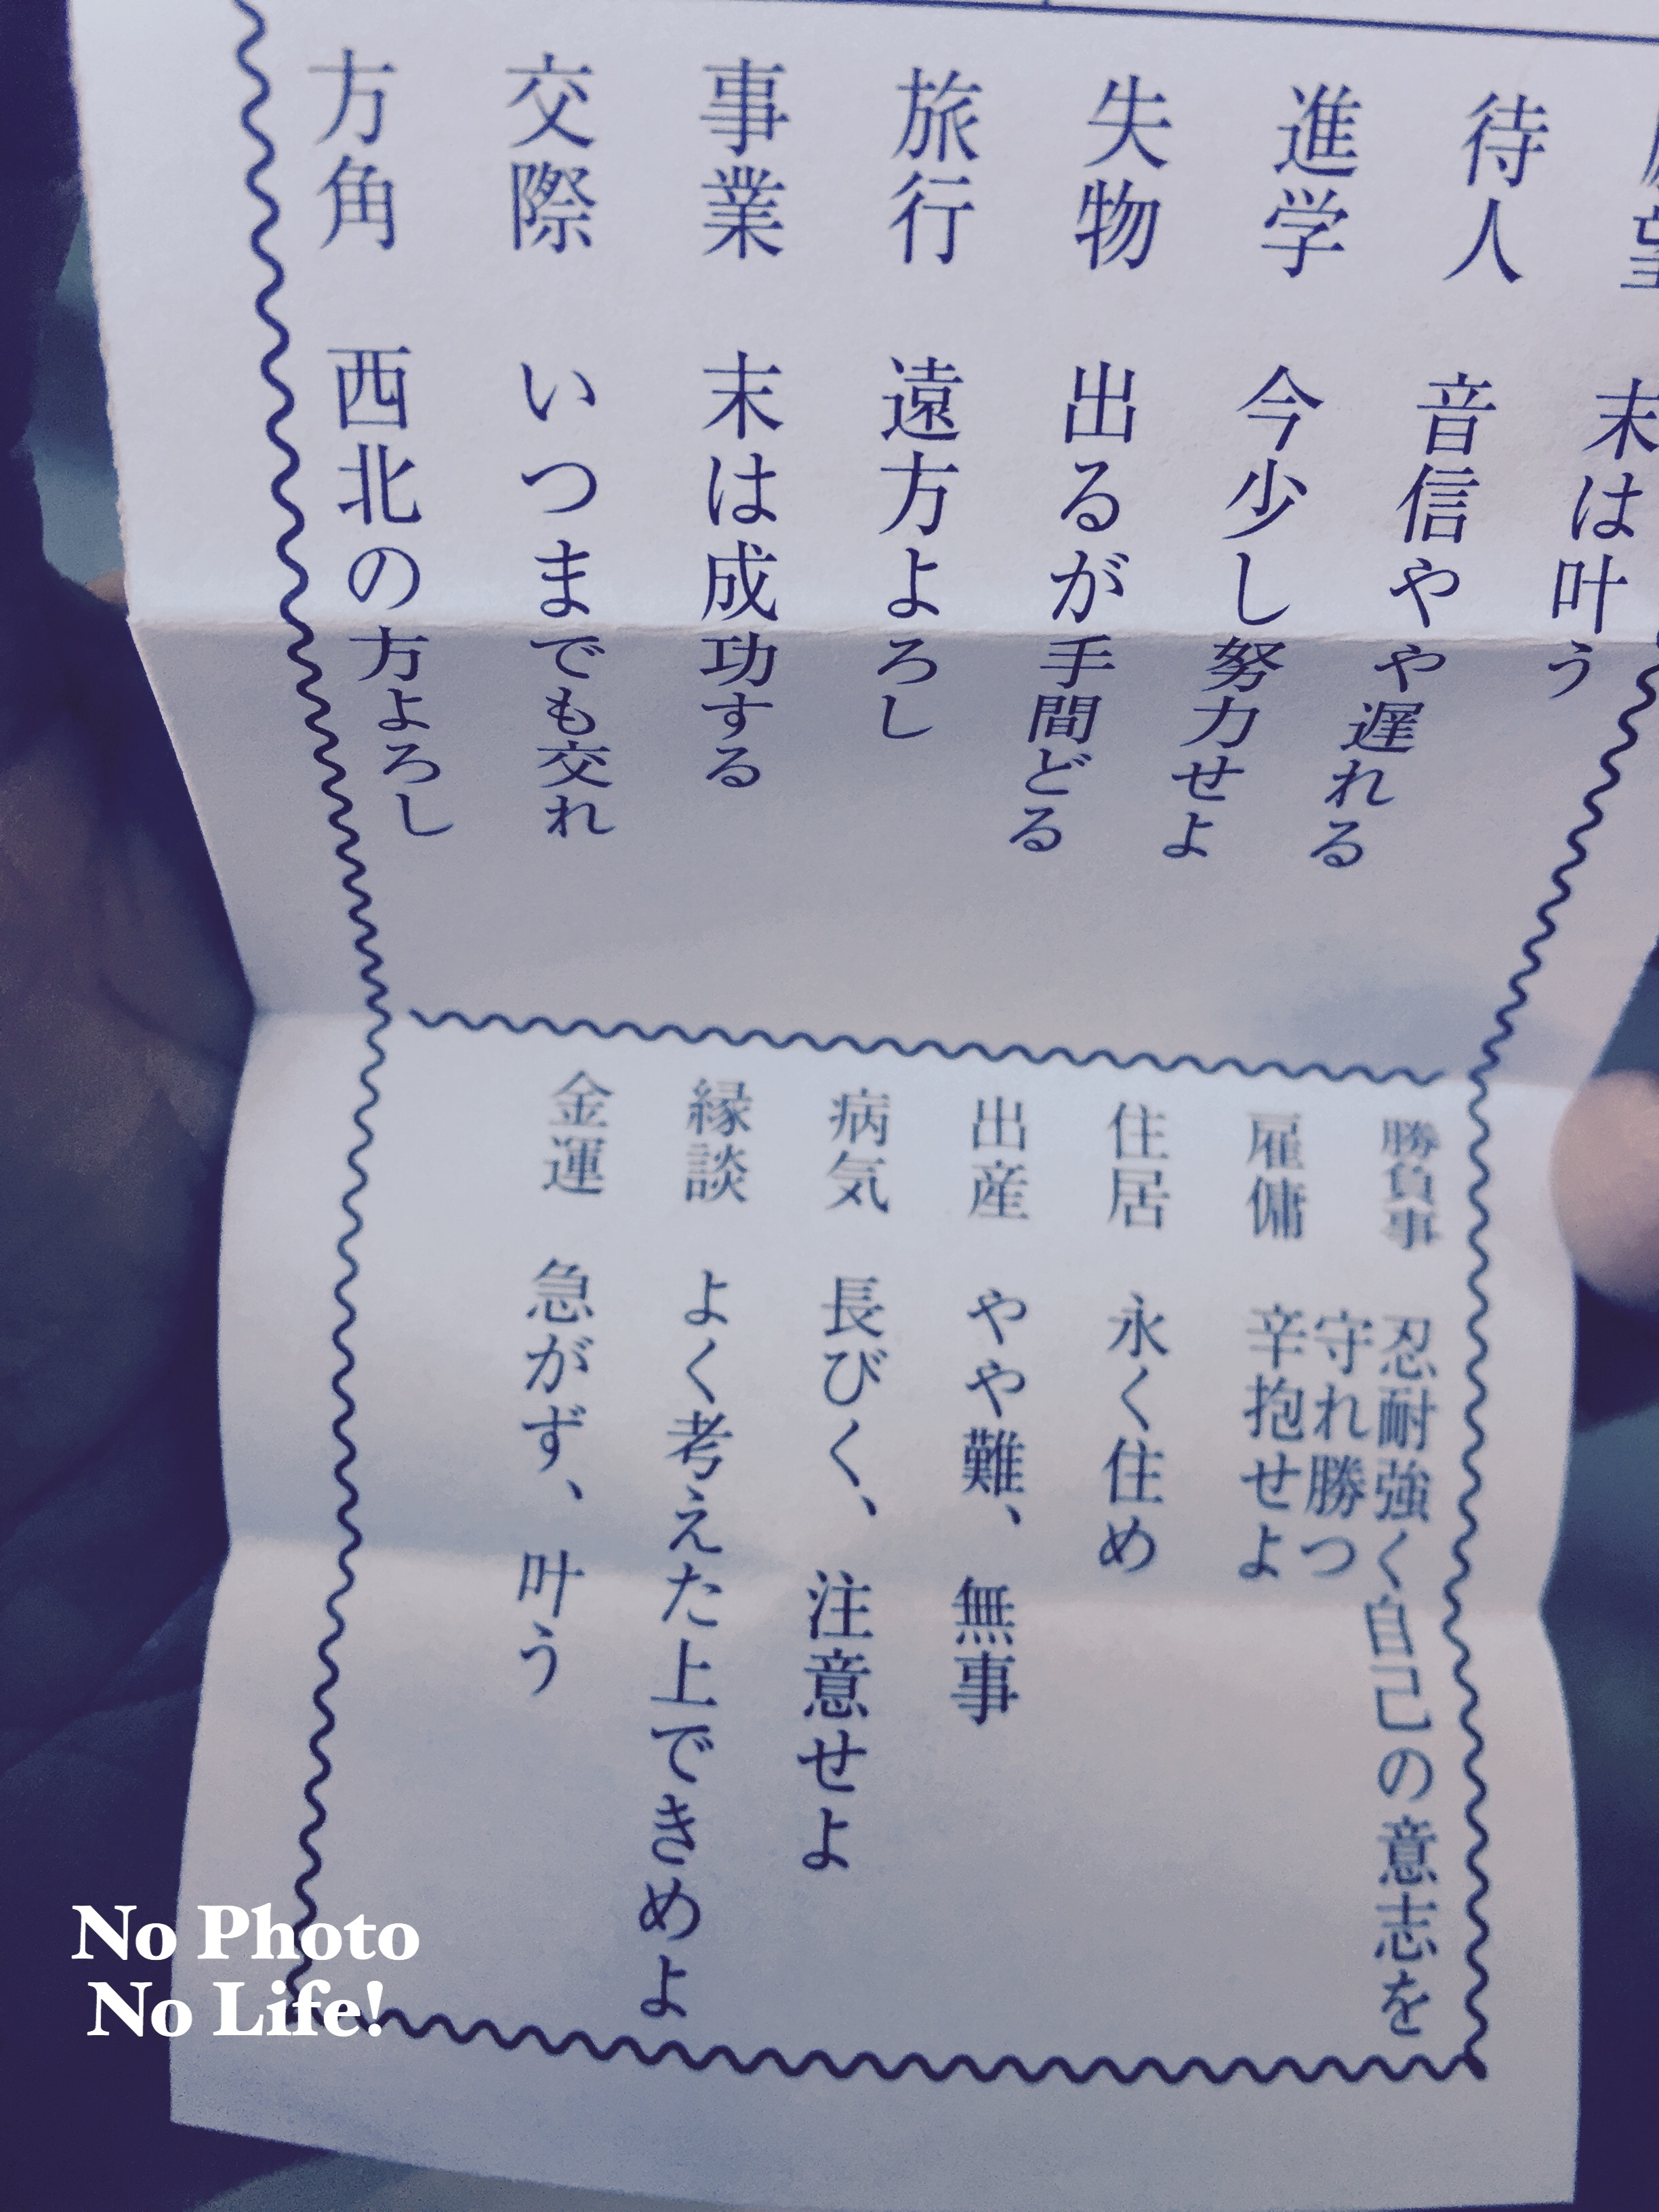 望　末は叶う
待人　音信やや遅れる
進学　今少し努力せよ
失物　出るが手間どる
旅行　遠方よろし
事業　末は成功する
交際　いつまでも交れ
方角　西北の方よろし
勝負事　忍耐強く自己の意志を
守れ勝つ
雇傭　辛抱せよ
住居　永く住め
出産　やや難、無事
病気　長びく、注意せよ
縁談　よく考えた上できめよ
金運　急がず、叶う
No Photo
No Life!